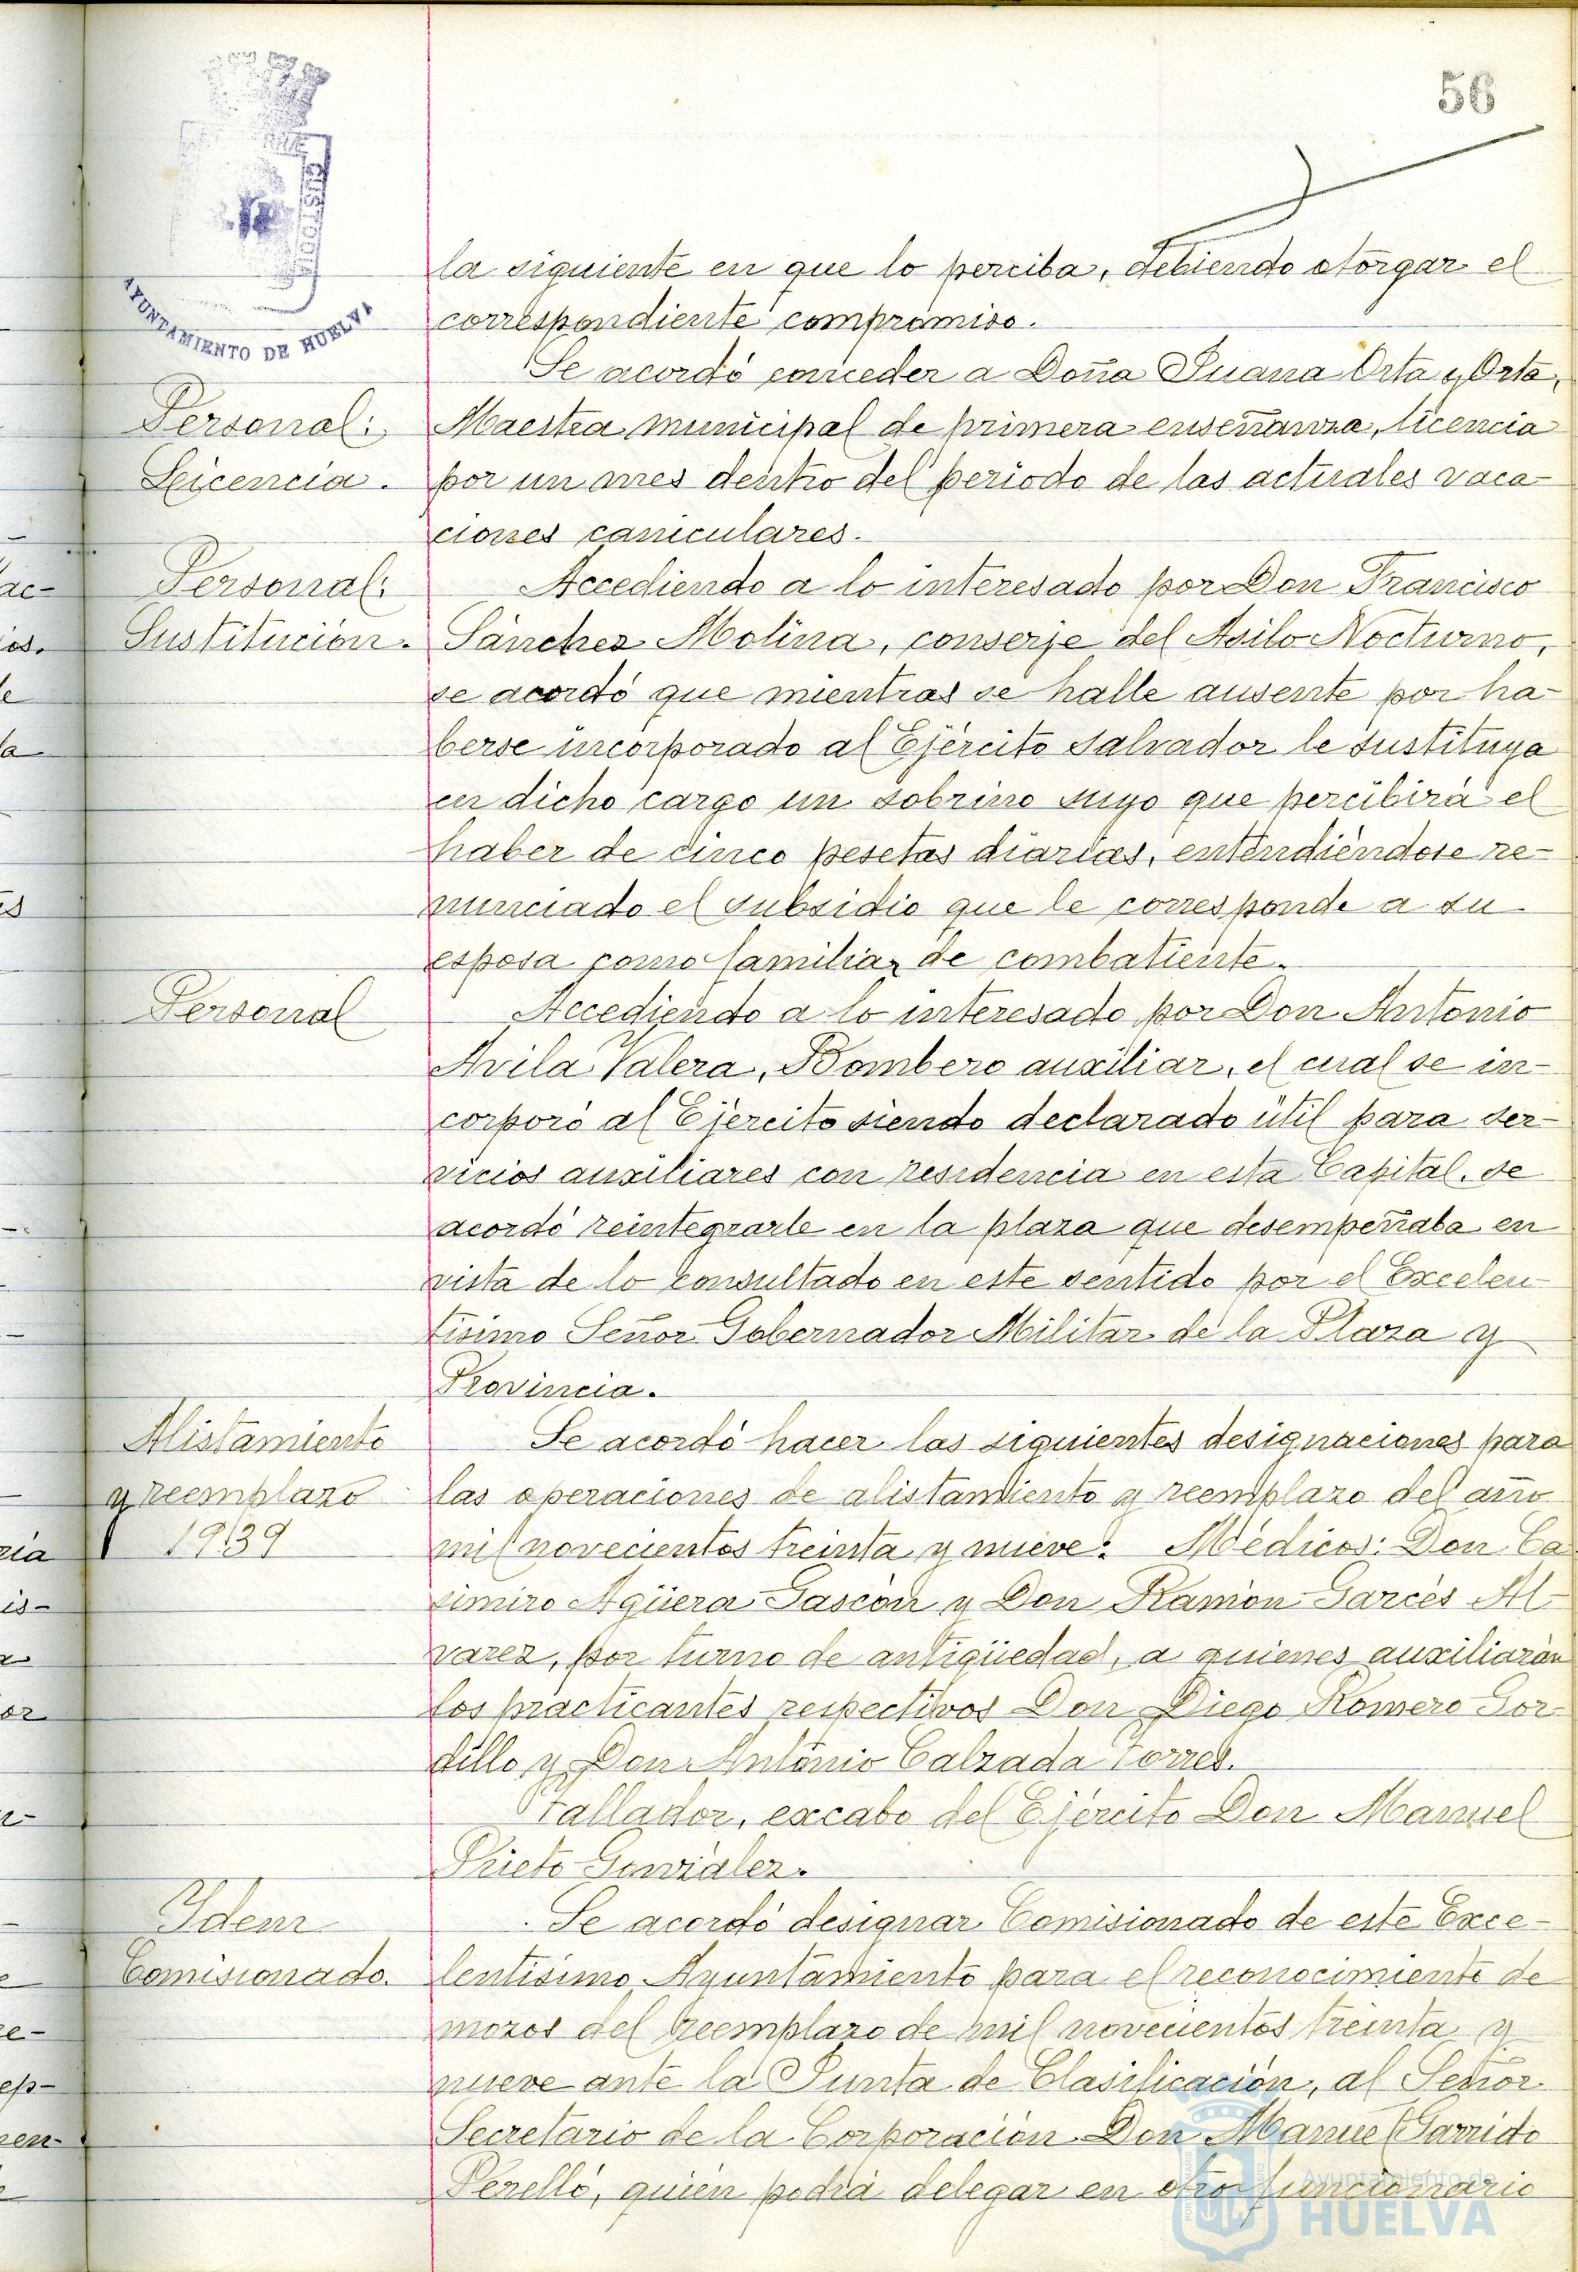 56
AYUNTAMIENTO DE HUELVA
la siguiente en que lo perciba, debiendo otorgar el
correspondiente compromiso.
Personal:
Licencia.
Se acordó conceder a Doña Juana Orta y Orta,
Maestra municipal de primera enseñanza, licencia
por un mes dentro del periodo de las actuales vaca-
ciones caniculares.
Personal:
Sustitución.
Accediendo a lo interesado por Don Francisco
Sánchez Molina, conserje del Asilo Nocturno,
se acordó que mientras se halle ausente por ha-
berse incorporado al Ejército Salvador le sustituya
en dicho cargo un sobrino suyo que percibirá el
haber de cinco pesetas diarias, entendiéndose re-
nunciado el subsidio que le corresponde a su
esposa como familiar de combatiente.
Personal
Accediendo a lo interesado por Don Antonio
Avila Valera, Bombero auxiliar, el cual se in-
corporó al Ejército siendo declarado útil para ser-
vicios auxiliares con residencia en esta Capital, se
acordó reintegrarle en la plaza que desempeñaba en
vista de lo consultado en este sentido por el Excelen-
tísimo Señor Gobernador Militar de la Plaza y
Provincia.
Alistamiento
y reemplazo
1939
Se acordó hacer las siguientes designaciones para
las operaciones de alistamiento y reemplazo del año
mil novecientos treinta y nueve: Médicos: Don Ca
simiro Agüera Gascón y Don Ramón Garcés Al-
varez, por turno de antigüedad, a quienes auxiliarán
los practicantes respectivos Don Diego Romero Gor-
dillo y Don Antonio Calzada Torres.
Tallador, excabo del Ejército Don Manuel
Prieto González.
Idem
Comisionado.
Se acordó designar Comisionado de este Exce-
lentísimo Ayuntamiento para el reconocimiento de
mozos del reemplazo de mil novecientos treinta y
nueve ante la Junta de Clasificación, al Señor
Secretario de la Corporación Don Manuel Garrido
Perelló, quién podrá delegar en otro funcionario
Ayuntamiento de
HUELVA